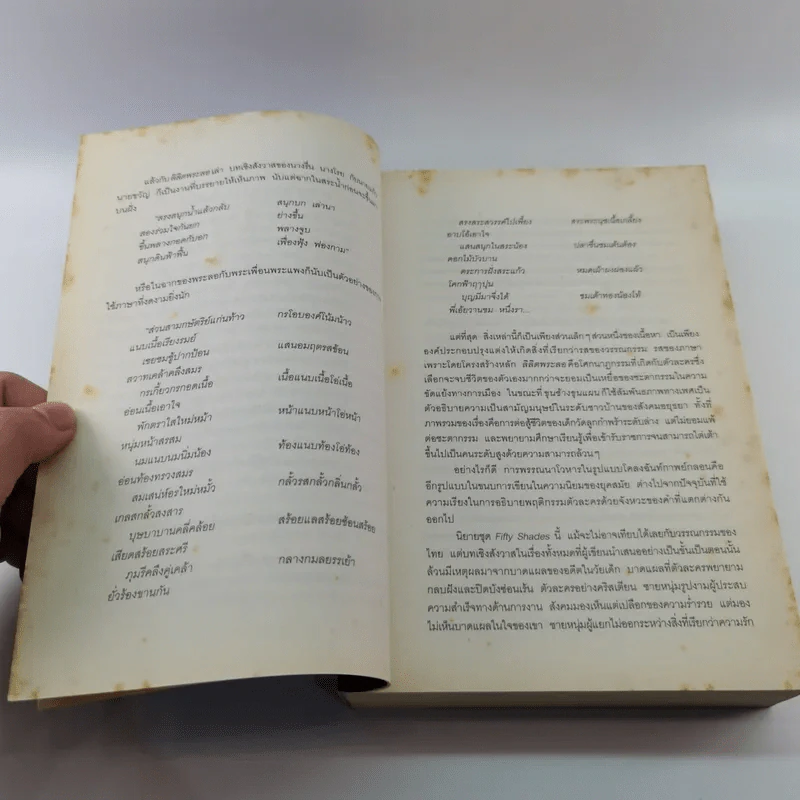 แล้วกับลิลิตพระลอเล่า บทเชิงสังวาสของนางรื่น นางโรย กับนายแก้ว
นายขวัญ ก็เป็นงานที่บรรยายให้เห็นภาพ นับแต่ฉากในสระน้ำก่อนจะขึ้นมา
บนฝั่ง
"สรงสนุกน้ำแล้วกลับ สนุกบก เล่านา
สองร่วมใจกันยก ย่างขึ้น
ขึ้นพลางกอดกับอก พลางจูบ
สนุกดินฟ้าฟื้น เฟื่องฟุ้ง ฟองกาม"
หรือในฉากของพระลอกับพระเพื่อนพระแพงก็นับเป็นตัวอย่างของการ
ใช้ภาษาที่งดงามยิ่งนัก
"สวนสามกษัตริย์แก่นท้าว กรโอบองค์โน้มน้าว
แนบเนื้อเรียงรมย์
เชยชมชู้ปากป้อน แสนอมฤตรสข้อน
สวาทเคล้าคลึงสมร
กรเกี้ยวกรกอดเนื้อ เนื้อแนบเนื้อโอ่เนื้อ
อ่อนเนื้อเอาใจ
พักตราใสใหม่หม้า หน้าแนบหน้าโอ่หน้า
หนุ่มหน้าสรสม
นมแนบนมนิ่มน้อง ท้องแนบท้องโอ่ท้อง
อ่อนท้องทรวงสมร
สมเสน่ห์อรใหม่หมั้ว กลั้วรสกลั้วกลิ่นกลั้ว
เกลสกลั้วสงสาร
บุษบาบานคลี่คล้อย สร้อยแลสร้อยซ้อนสร้อย
เสียดสร้อยสระศรี
ภุมรีคลึงคู่เคล้า กลางกมลยรรเย้า
ยั่วร้องขานกัน
สรงสระสวรรค์ไป่เพี้ยง สระพระนุชเนื้อเกลี้ยง
อาบโอ้เอาใจ
แสนสนุกในสระน้อง ปลาชื่นชมเต้นต้อง
ดอกไม้บัวบาน
ตระการฝั่งสระแก้ว หมดเผ้าผงผ่องแผ้ว
โคกฟ้าฤๅปุน
บุญมีมาจึ่งได้ ชมเต้าทองน้องไท้
พี่เอ้ยวานชม หนึ่งรา...
แต่ที่สุด สิ่งเหล่านี้ก็เป็นเพียงส่วนเล็กๆ ส่วนหนึ่งของเนื้อหา เป็นเพียง
องค์ประกอบปรุงแต่งให้เกิดสิ่งที่เรียกว่ารสของวรรณกรรม รสของภาษา
เพราะโดยโครงสร้างหลัก ลิลิตพระลอ คือโศกนาฏกรรมที่เกิดกับตัวละครซึ่ง
เลือกจะจบชีวิตของตัวเองมากกว่าจะยอมเป็นเหยื่อของชะตากรรมในความ
ขัดแย้งทางการเมือง ในขณะที่ ขุนช้างขุนแผน ก็ใช้สัมพันธภาพทางเพศเป็น
ตัวอธิบายความเป็นสามัญมนุษย์ในระดับชาวบ้านของสังคมอยุธยา ทั้งที่
ภาพรวมของเรื่องคือการต่อสู้ชีวิตของเด็กวัดลูกกำพร้าระดับล่าง แต่ไม่ยอมแพ้
ต่อชะตากรรม และพยายามศึกษาเรียนรู้เพื่อเข้ารับราชการจนสามารถไต่เต้า
ขึ้นไปเป็นคนระดับสูงด้วยความสามารถล้วนๆ
อย่างไรก็ดี การพรรณนาโวหารในรูปแบบโคลงฉันท์กาพย์กลอนคือ
อีกรูปแบบในขนบการเขียนในความนิยมของยุคสมัย ต่างไปจากปัจจุบันที่ใช้
ความเรียงในการอธิบายพฤติกรรมตัวละครด้วยจังหวะของคำที่แตกต่างกัน
ออกไป
นิยายชุด Fifty Shades นี้ แม้จะไม่อาจเทียบได้เลยกับวรรณกรรมของ
ไทย แต่บทเชิงสังวาสในเรื่องทั้งหมดที่ผู้เขียนนำเสนออย่างเป็นขั้นเป็นตอนนั้น
ล้วนมีเหตุผลมาจากบาดแผลของอดีตในวัยเด็ก บาดแผลที่ตัวละครพยายาม
กลบฝังและปิดบังซ่อนเร้น ตัวละครอย่างคริสเตียน ชายหนุ่มรูปงามผู้ประสบ
ความสำเร็จทางด้านการงาน สังคมมองเห็นแต่เปลือกของความร่ำรวย แต่มอง
ไม่เห็นบาดแผลในใจของเขา ชายหนุ่มผู้แยกไม่ออกระหว่างสิ่งที่เรียกว่าความรัก